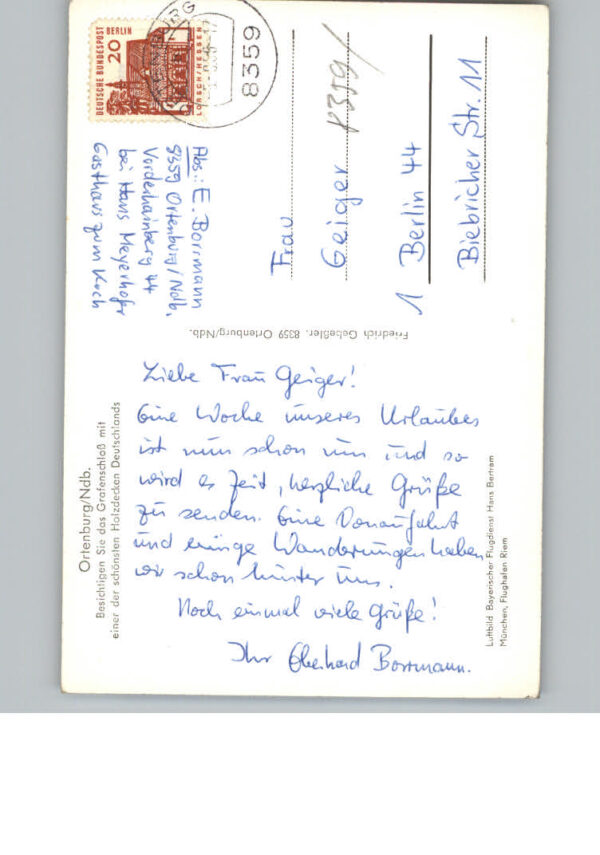 Liebe Frau Geiger!
Eine Woche unseres Urlaubes
ist nun schon um und so
wird es Zeit, herzliche Grüße
zu senden. Eine Donaufahrt
und einige Wanderungen haben
wir schon hinter uns.
Noch einmal viele Grüße!
Ihr Eberhard Borrmann.
Ortenburg/Ndb.
Besichtigen Sie das Grafenschloß mit
einer der schönsten Holzdecken Deutschlands
Friedrich Gebeßler, 8359 Ortenburg/Ndb.
Luftbild Bayerischer Flugdienst Hans Bertram
München, Flughafen Riem
Abs.: E. Borrmann
8359 Ortenburg/Ndb.
Vorderhainberg 44
bei Hans Meyerhofer
Gasthaus zum Koch
DEUTSCHE BUNDESPOST
BERLIN
20
LORSCH/HESSEN
8359
8359/
Frau
Geiger
1 Berlin 44
Biebricher Str. 11